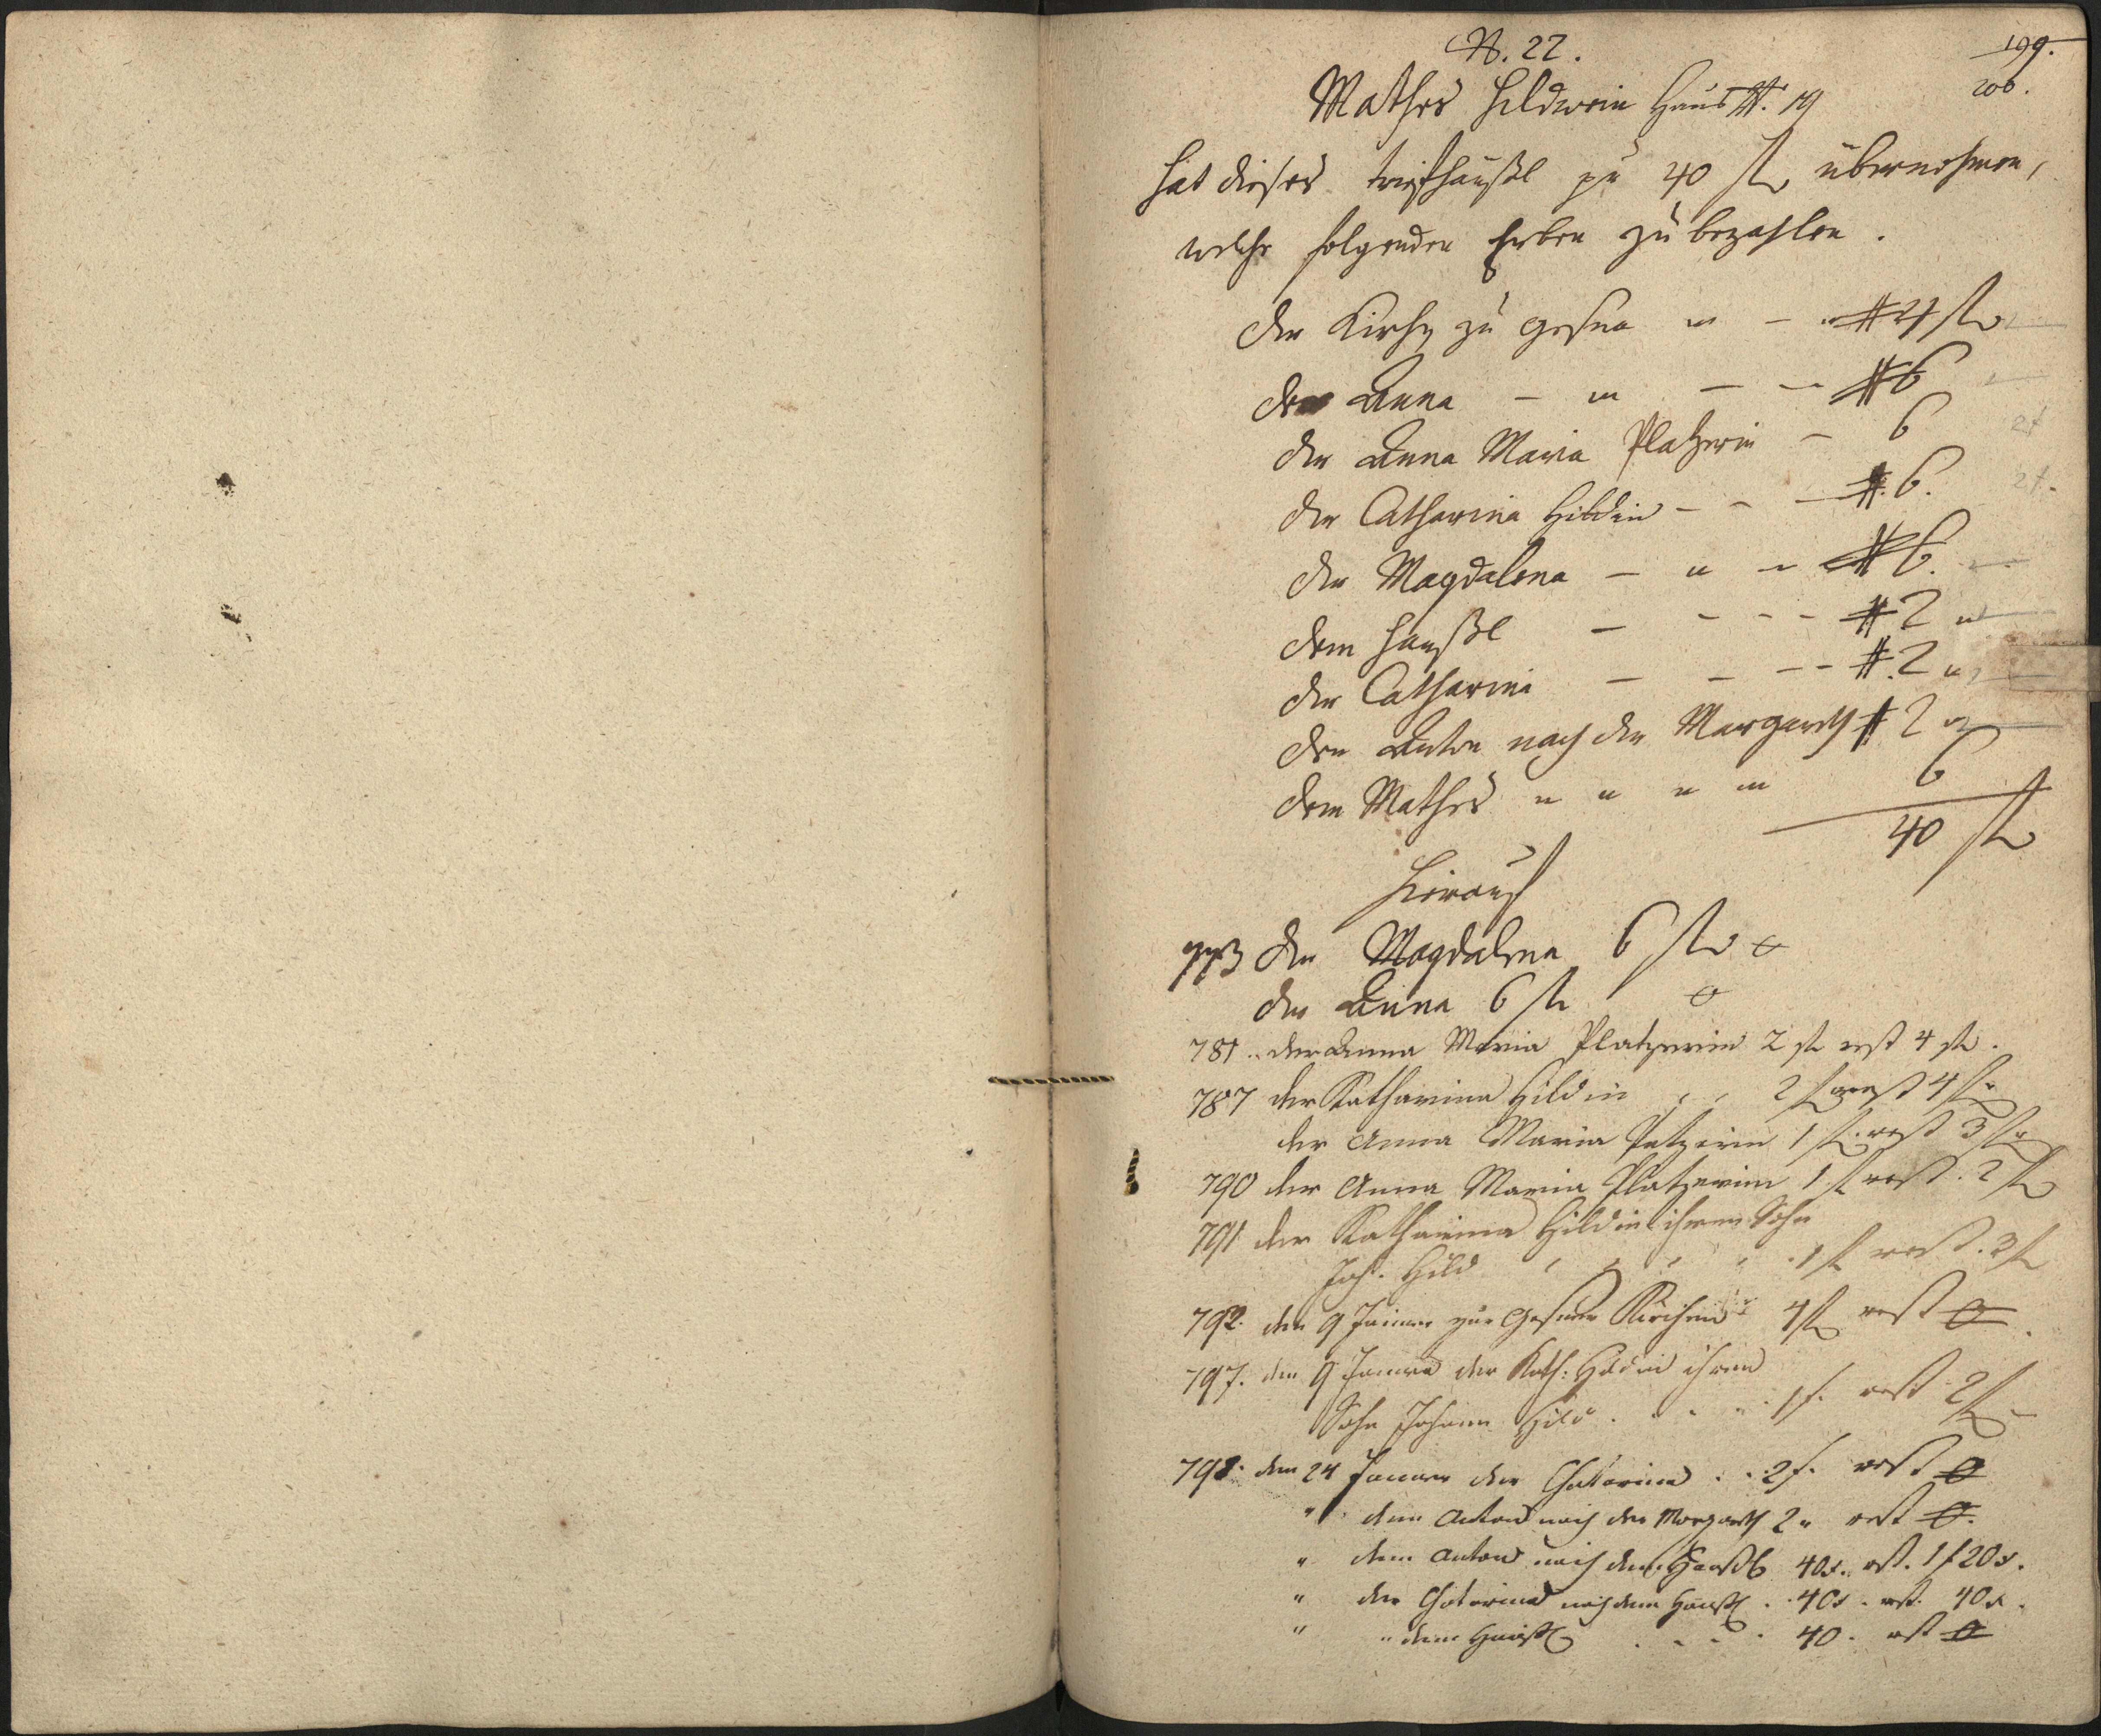 N. 22.
199.
200.
Mathes Hildwein Haus N. 19
hat dieses trifthäußl pr 40 fl übernohmen,
welche folgenden Erben zu bezahlen.
der Kirche zu Gossna " - # 4 fl
der Anna - " - - # 6
der Anna Maria Platzerin - 6
der Catharina Hildin - - - # 6.
der Magdalena - " - # 6.
dem Hanßl - - - - # 2 "
der Catharina - - - - # 2 "
den Anton nach der Margareth # 2 "
dem Mathes " " " " 6
40 fl
Hierauf
773 der Magdalena 6 fl 0
der Anna 6 fl 0
781 .. der Anna Maria Platzerin 2 fl rest 4 fl.
787 der Katharina Hildin , , 2 fl rest 4 fl
der Anna Maria Patzerin 1 fl. rest 3 fl
790 der Anna Maria Platzerin 1 fl rest. 2 fl
791 der Katharina Hildin ihrem Sohn
Joh. Hild , , , , 1 fl rest. 3 fl
792. den 9 Jänner zur Gossner Kirchen 4 fl rest 0.
797. den 9 Januar der Kath: Hildin ihrem
Sohn Johann Hild . . . . 1 f. rest 2 fl
798. den 24 Januar der Chatarina . . 2 f. rest 0
" dem Anton nach der Margareth 2 " rest 0.
" dem Anton nach dem Hanßl 40 x. rst. 1 f 20 x.
" der Chatarina nach dem Hanßl . . 40 x . rst. 40 x.
" " dem Hanßl . . . . 40 . rst 0